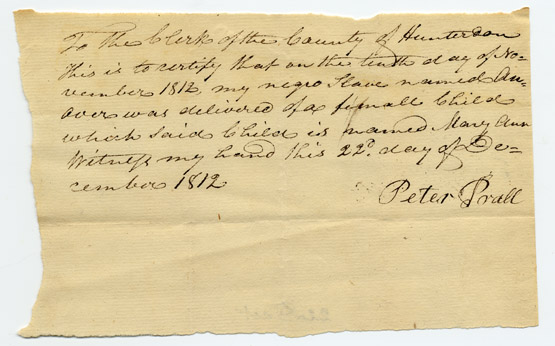 To the Clerk of the County of Hunterdon
This is to certify that on the tenth day of No=
vember 1812 my negro Slave named An=
over was delivered of a femall Child
which Said Child is named Mary Ann
Witness my hand this 22d. day of De=
cember 1812
Peter Prall